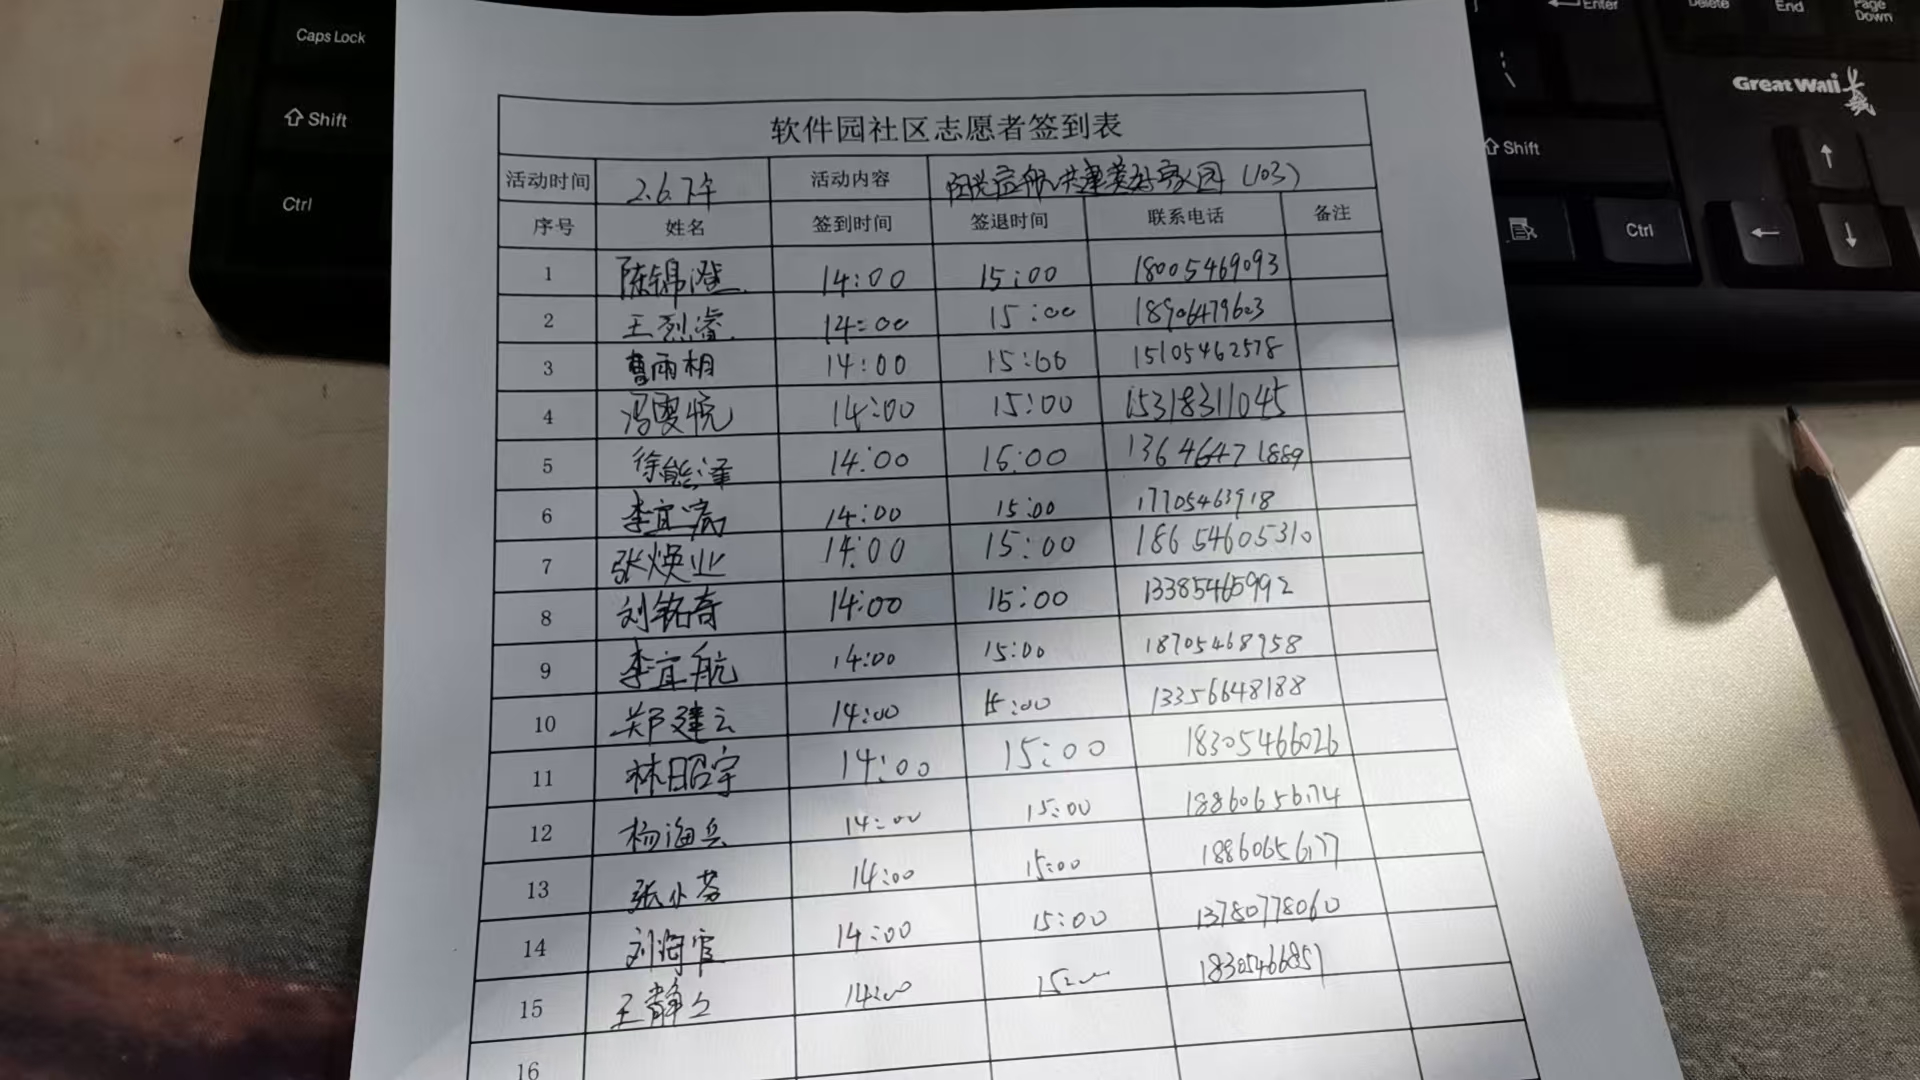 Caps Lock
Shift
Ctrl
Enter
Delete
End
Page Down
Great Wall 长城
Shift
Ctrl
软件园社区志愿者签到表
活动时间 2.6.下午 活动内容 阳光启航 共建美好家园 (103)
序号 姓名 签到时间 签退时间 联系电话 备注
1 陈锦澄 14:00 15:00 18005469093
2 王烈睿 14:00 15:00 18906479603
3 曹雨桐 14:00 15:00 15105462578
4 冯雯悦 14:00 15:00 15318311045
5 徐能泽 14:00 15:00 13646471889
6 李宜宸 14:00 15:00 17705463918
7 张焕业 14:00 15:00 18654605310
8 刘铭奇 14:00 15:00 13385465992
9 李宜航 14:00 15:00 18705468958
10 郑建云 14:00 15:00 13356648188
11 林昭宇 14:00 15:00 18305466026
12 杨海兵 14:00 15:00 18860656174
13 张小芬 14:00 15:00 18860656177
14 刘海官 14:00 15:00 13780778060
15 王静 14:00 15:00 18305466857
16